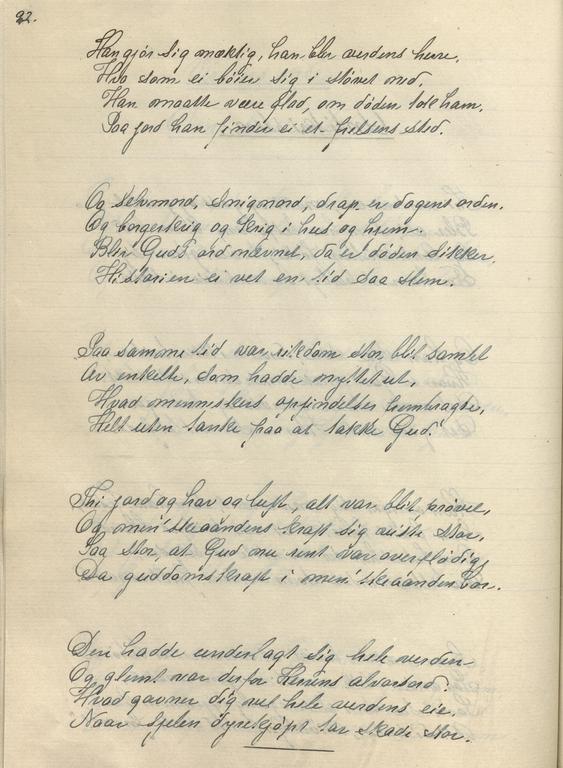 22.
Han gjør sig mæktig, han blir verdens herre.
Hvo som ei böier sig i stövet ned,
Han maatte være glad, om döden tok ham.
Paa jord han finder ei et frelsens sted.
Og selvmord, snigmord, drap er dagens orden.
Og borgerkrig og krig i hus og hjem.
Blir Guds ord nævnet, da er döden sikker.
Historien ei vet en tid saa slem.
Paa samme tid var rikdom stor blit samlet
Av enkelte, som hadde nyttet ut,
Hvad menneskers opfindelser frembragte,
Helt uten tanke paa at takke Gud.
Thi jord og hav og luft, alt var blit prövet,
Og men'skeaandens kraft sig viste stor,
Saa stor, at Gud nu rent var overflödig,
Da guddomskraft i men'skeaanden bor.
Den hadde underlagt sig hele verden
Og glemt var derfor Herrens alvorsord:
Hvad gavner dig vel hele verdens eie,
Naar sjelen dyrekjöpt tar skade stor.